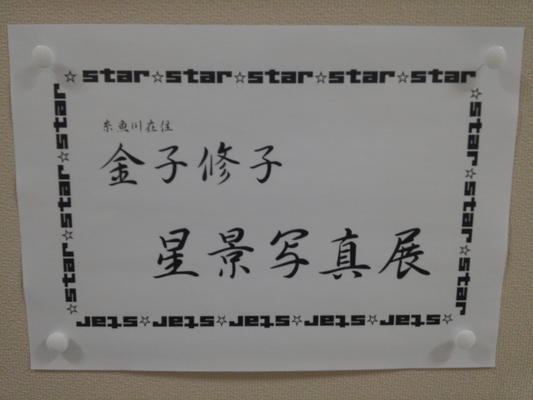 star☆star☆star☆star☆star
糸魚川在住
金子修子
星景写真展
☆star☆star☆star
☆star☆star☆star
star☆star☆star☆star☆star